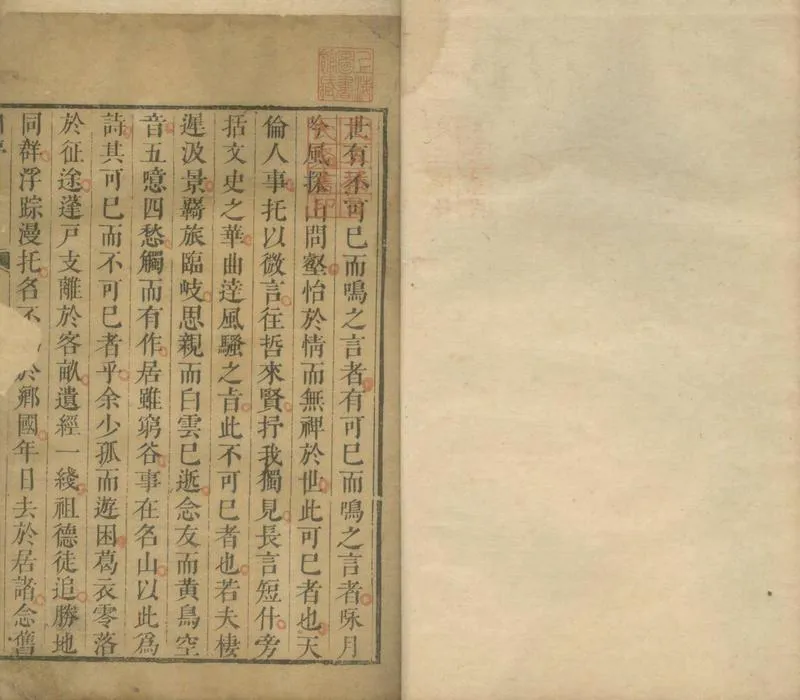 世有不可已而鳴之言者有可已而鳴之言者咏月
吟風探山問壑怡於情而無裨於世此可已者也天
倫人事托以微言往哲來賢抒我獨見長言短什旁
括文史之華曲達風騷之旨此不可已者也若夫棲
遲汲景羈旅臨岐思親而白雲已逝念友而黃鳥空
音五噫四愁觸而有作居雖窮谷事在名山以此為
詩其可已而不可已者乎余少孤而遊困葛衣零落
於征途蓬戶支離於客畝遺經一綫祖德徒追勝地
同群浮踪漫托名不於鄉國年日去於居諸念舊